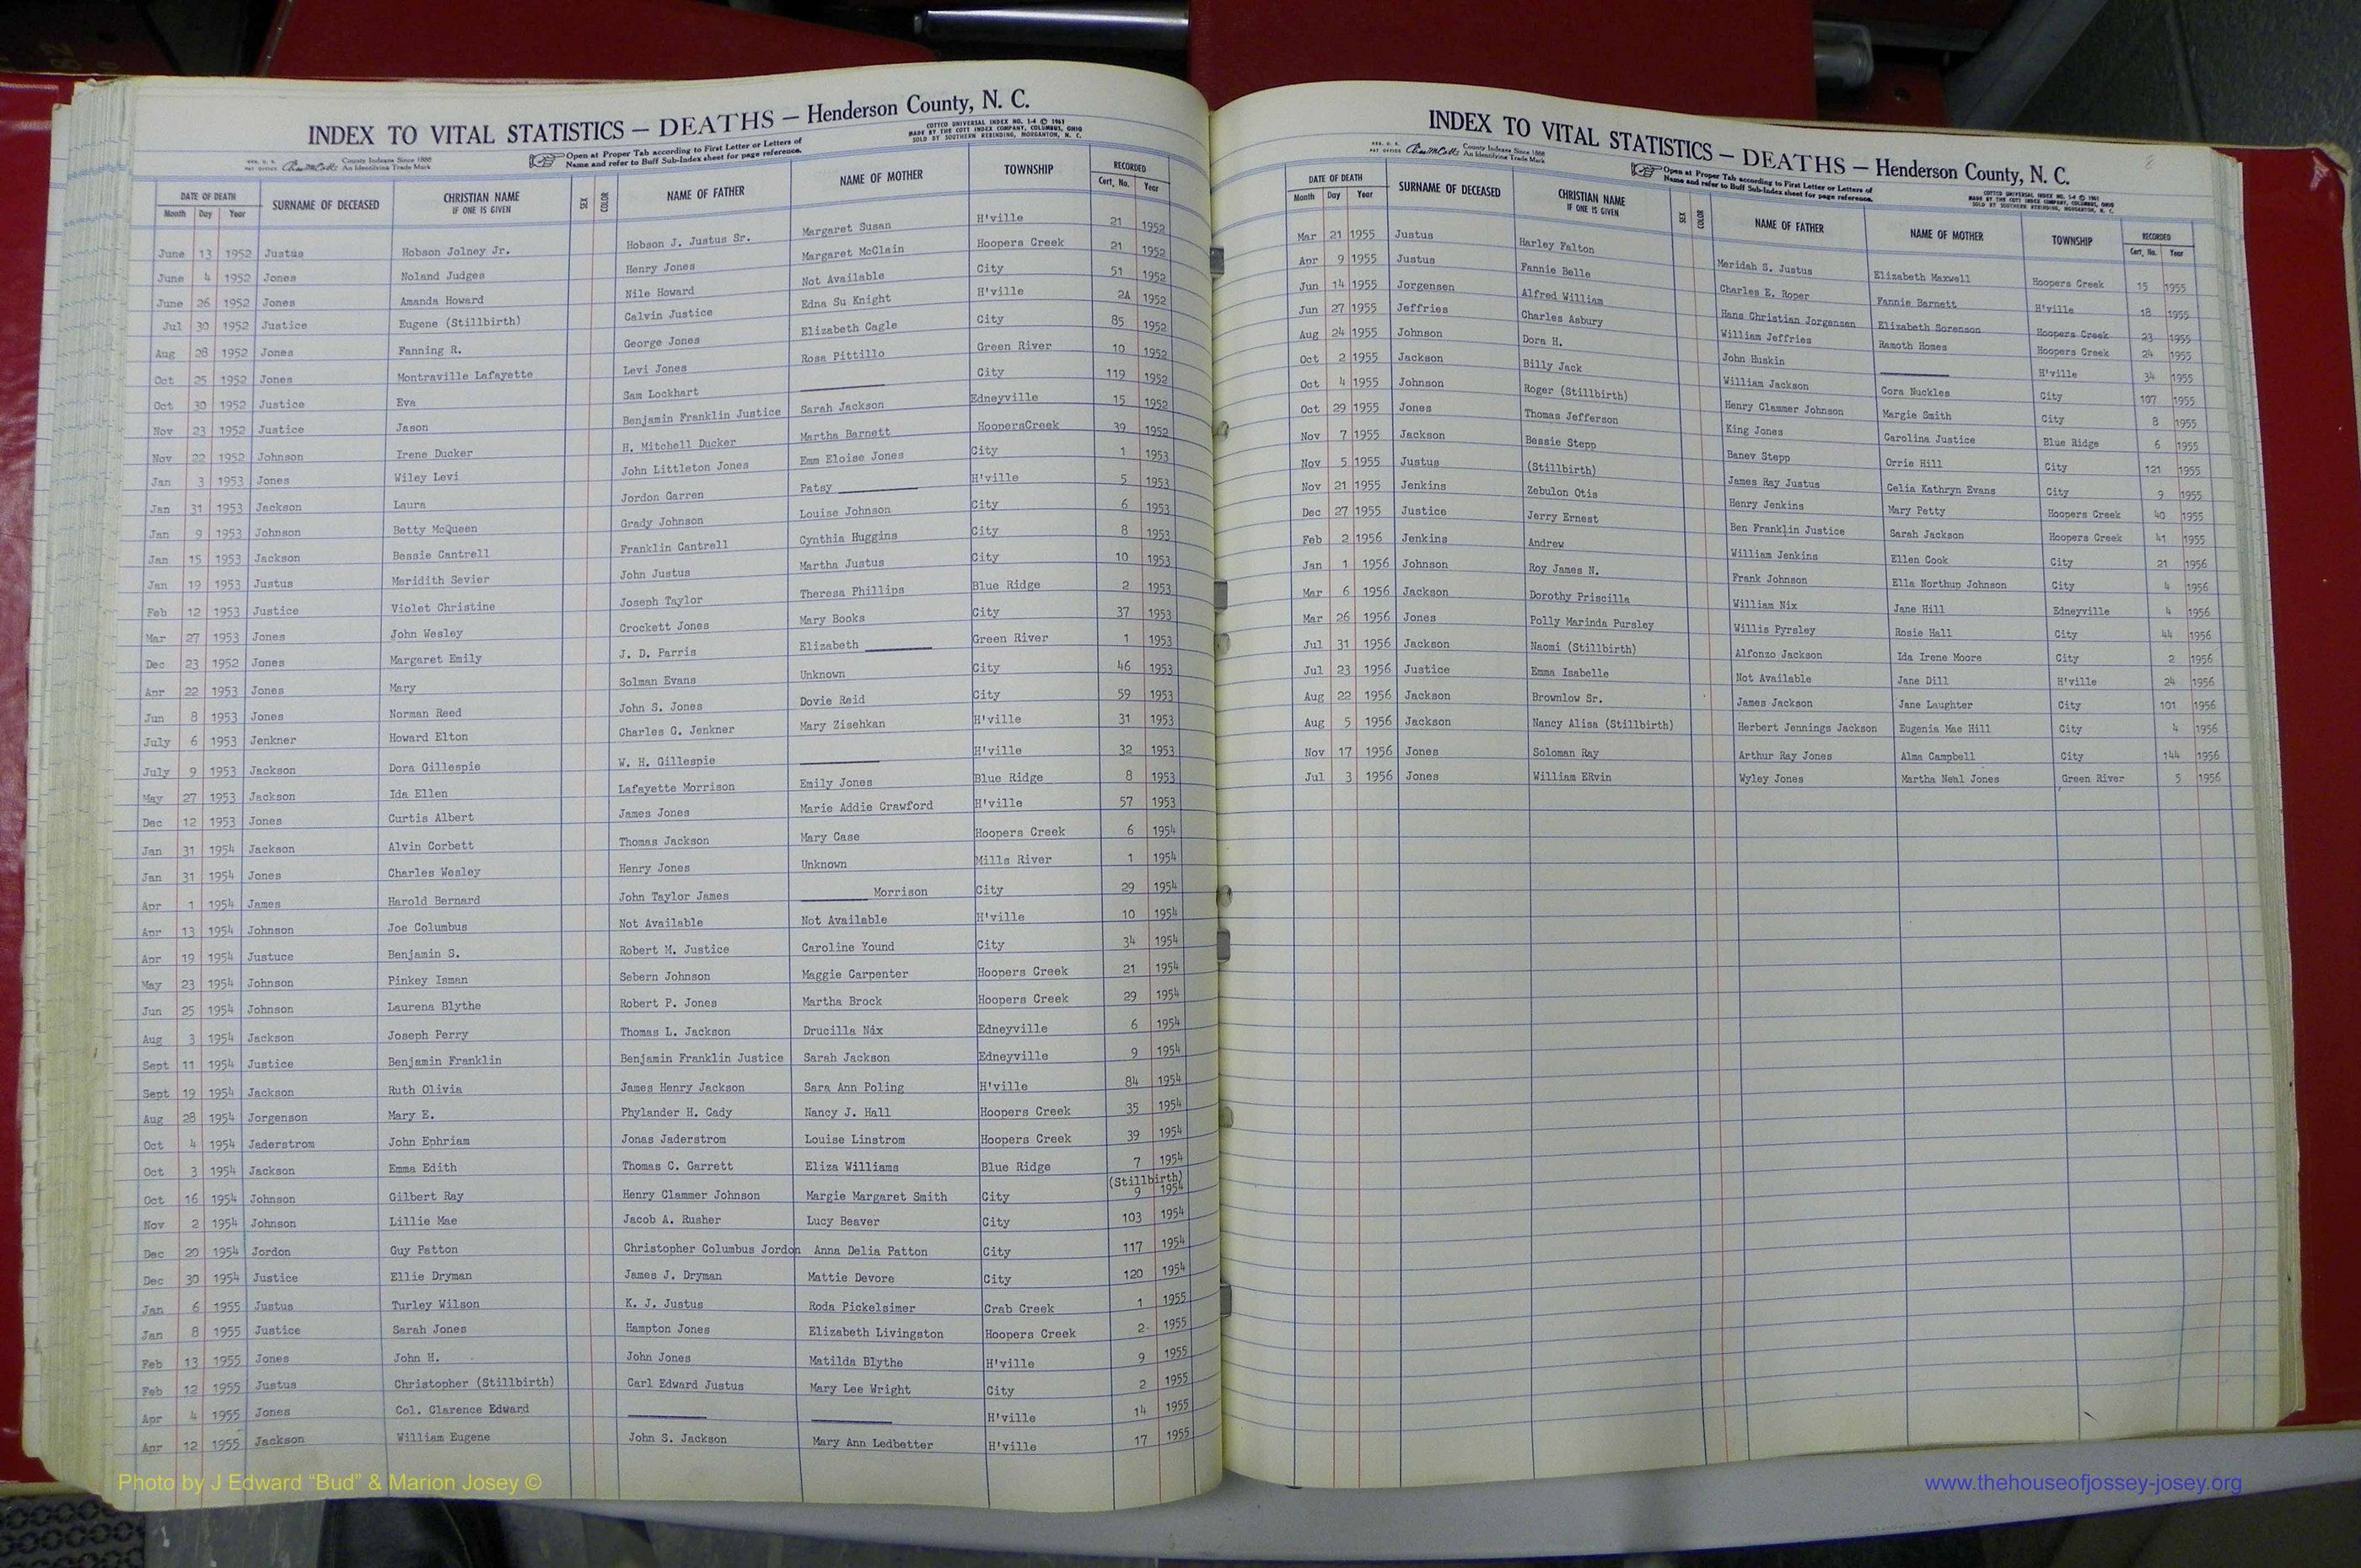 INDEX TO VITAL STATISTICS — DEATHS — Henderson County, N. C.
COTTCO UNIVERSAL INDEX NO. 1-4 © 1961
MADE BY THE COTT INDEX COMPANY, COLUMBUS, OHIO
SOLD BY SOUTHERN REBINDING, MORGANTON, N. C.
REG. U. S. PAT OFFICE County Indexes Since 1888 An Identifying Trade Mark
Open at Proper Tab according to First Letter or Letters of
Name and refer to Buff Sub-Index sheet for page reference.
DATE OF DEATH SURNAME OF DECEASED CHRISTIAN NAME IF ONE IS GIVEN SEX COLOR NAME OF FATHER NAME OF MOTHER TOWNSHIP RECORDED
Month Day Year Cert. No. Year
June 13 1952 Justus Hobson Jolney Jr. Hobson J. Justus Sr. Margaret Susan H'ville 21 1952
June 4 1952 Jones Noland Judges Henry Jones Margaret McClain Hoopers Creek 21 1952
June 26 1952 Jones Amanda Howard Nile Howard Not Available City 51 1952
Jul 30 1952 Justice Eugene (Stillbirth) Calvin Justice Edna Su Knight H'ville 2A 1952
Aug 28 1952 Jones Fanning R. George Jones Elizabeth Cagle City 85 1952
Oct 25 1952 Jones Montraville Lafayette Levi Jones Rosa Pittillo Green River 10 1952
Oct 30 1952 Justice Eva Sam Lockhart City 119 1952
Nov 23 1952 Justice Jason Benjamin Franklin Justice Sarah Jackson Edneyville 15 1952
Nov 22 1952 Johnson Irene Ducker H. Mitchell Ducker Martha Barnett HoopersCreek 39 1952
Jan 3 1953 Jones Wiley Levi John Littleton Jones Emm Eloise Jones City 1 1953
Jan 31 1953 Jackson Laura Jordon Garren Patsy H'ville 5 1953
Jan 9 1953 Johnson Betty McQueen Grady Johnson Louise Johnson City 6 1953
Jan 15 1953 Jackson Bessie Cantrell Franklin Cantrell Cynthia Huggins City 8 1953
Jan 19 1953 Justus Meridith Sevier John Justus Martha Justus City 10 1953
Feb 12 1953 Justice Violet Christine Joseph Taylor Theresa Phillips Blue Ridge 2 1953
Mar 27 1953 Jones John Wesley Crockett Jones Mary Books City 37 1953
Dec 23 1952 Jones Margaret Emily J. D. Parris Elizabeth Green River 1 1953
Apr 22 1953 Jones Mary Solman Evans Unknown City 46 1953
Jun 8 1953 Jones Norman Reed John S. Jones Dovie Reid City 59 1953
July 6 1953 Jenkner Howard Elton Charles G. Jenkner Mary Zisehkan H'ville 31 1953
July 9 1953 Jackson Dora Gillespie W. H. Gillespie H'ville 32 1953
May 27 1953 Jackson Ida Ellen Lafayette Morrison Emily Jones Blue Ridge 8 1953
Dec 12 1953 Jones Curtis Albert James Jones Marie Addie Crawford H'ville 57 1953
Jan 31 1954 Jackson Alvin Corbett Thomas Jackson Mary Case Hoopers Creek 6 1954
Jan 31 1954 Jones Charles Wesley Henry Jones Unknown Mills River 1 1954
Apr 1 1954 James Harold Bernard John Taylor James Morrison City 29 1954
Apr 13 1954 Johnson Joe Columbus Not Available Not Available H'ville 10 1954
Apr 19 1954 Justuce Benjamin S. Robert M. Justice Caroline Yound City 34 1954
May 23 1954 Johnson Pinkey Isman Sebern Johnson Maggie Carpenter Hoopers Creek 21 1954
Jun 25 1954 Johnson Laurena Blythe Robert P. Jones Martha Brock Hoopers Creek 29 1954
Aug 3 1954 Jackson Joseph Perry Thomas L. Jackson Drucilla Nix Edneyville 6 1954
Sept 11 1954 Justice Benjamin Franklin Benjamin Franklin Justice Sarah Jackson Edneyville 9 1954
Sept 19 1954 Jackson Ruth Olivia James Henry Jackson Sara Ann Poling H'ville 84 1954
Aug 28 1954 Jorgenson Mary E. Phylander H. Cady Nancy J. Hall Hoopers Creek 35 1954
Oct 4 1954 Jaderstrom John Ephriam Jonas Jaderstrom Louise Linstrom Hoopers Creek 39 1954
Oct 3 1954 Jackson Emma Edith Thomas C. Garrett Eliza Williams Blue Ridge 7 1954
(Stillbirth)
Oct 16 1954 Johnson Gilbert Ray Henry Clammer Johnson Margie Margaret Smith City 9 1954
Nov 2 1954 Johnson Lillie Mae Jacob A. Rusher Lucy Beaver City 103 1954
Dec 20 1954 Jordon Guy Patton Christopher Columbus Jordon Anna Delia Patton City 117 1954
Dec 30 1954 Justice Ellie Dryman James J. Dryman Mattie Devore City 120 1954
Jan 6 1955 Justus Turley Wilson K. J. Justus Roda Pickelsimer Crab Creek 1 1955
Jan 8 1955 Justice Sarah Jones Hampton Jones Elizabeth Livingston Hoopers Creek 2 1955
Feb 13 1955 Jones John H. John Jones Matilda Blythe H'ville 9 1955
Feb 12 1955 Justus Christopher (Stillbirth) Carl Edward Justus Mary Lee Wright City 2 1955
Apr 4 1955 Jones Col. Clarence Edward H'ville 14 1955
Apr 12 1955 Jackson William Eugene John S. Jackson Mary Ann Ledbetter H'ville 17 1955
Photo by J Edward “Bud” & Marion Josey ©
INDEX TO VITAL STATISTICS — DEATHS — Henderson County, N. C.
8
REG. U. S. PAT OFFICE County Indexes Since 1888 An Identifying Trade Mark
Open at Proper Tab according to First Letter or Letters of
Name and refer to Buff Sub-Index sheet for page reference.
COTTCO UNIVERSAL INDEX NO. 1-4 © 1961
MADE BY THE COTT INDEX COMPANY, COLUMBUS, OHIO
SOLD BY SOUTHERN REBINDING, MORGANTON, N. C.
DATE OF DEATH SURNAME OF DECEASED CHRISTIAN NAME IF ONE IS GIVEN SEX COLOR NAME OF FATHER NAME OF MOTHER TOWNSHIP RECORDED
Month Day Year Cert. No. Year
Mar 21 1955 Justus Harley Falton Meridah S. Justus Elizabeth Maxwell Hoopers Creek 15 1955
Apr 9 1955 Justus Fannie Belle Charles E. Roper Fannie Barnett H'ville 18 1955
Jun 14 1955 Jorgensen Alfred William Hans Christian Jorgensen Elizabeth Sorenson Hoopers Creek 23 1955
Jun 27 1955 Jeffries Charles Asbury William Jeffries Ramoth Homes Hoopers Creek 24 1955
Aug 24 1955 Johnson Dora H. John Huskin H'ville 34 1955
Oct 2 1955 Jackson Billy Jack William Jackson Cora Nuckles City 107 1955
Oct 4 1955 Johnson Roger (Stillbirth) Henry Clammer Johnson Margie Smith City 8 1955
Oct 29 1955 Jones Thomas Jefferson King Jones Carolina Justice Blue Ridge 6 1955
Nov 7 1955 Jackson Bessie Stepp Banev Stepp Orrie Hill City 121 1955
Nov 5 1955 Justus (Stillbirth) James Ray Justus Celia Kathryn Evans City 9 1955
Nov 21 1955 Jenkins Zebulon Otis Henry Jenkins Mary Petty Hoopers Creek 40 1955
Dec 27 1955 Justice Jerry Ernest Ben Franklin Justice Sarah Jackson Hoopers Creek 41 1955
Feb 2 1956 Jenkins Andrew William Jenkins Ellen Cook City 21 1956
Jan 1 1956 Johnson Roy James N. Frank Johnson Ella Northup Johnson City 4 1956
Mar 6 1956 Jackson Dorothy Priscilla William Nix Jane Hill Edneyville 4 1956
Mar 26 1956 Jones Polly Marinda Pursley Willis Pyrsley Rosie Hall City 44 1956
Jul 31 1956 Jackson Naomi (Stillbirth) Alfonzo Jackson Ida Irene Moore City 2 1956
Jul 23 1956 Justice Emma Isabelle Not Available Jane Dill H'ville 24 1956
Aug 22 1956 Jackson Brownlow Sr. James Jackson Jane Laughter City 101 1956
Aug 5 1956 Jackson Nancy Alisa (Stillbirth) Herbert Jennings Jackson Eugenia Mae Hill City 4 1956
Nov 17 1956 Jones Soloman Ray Arthur Ray Jones Alma Campbell City 144 1956
Jul 3 1956 Jones William ERvin Wyley Jones Martha Nehl Jones Green River 5 1956
www.thehouseofjossey-josey.org